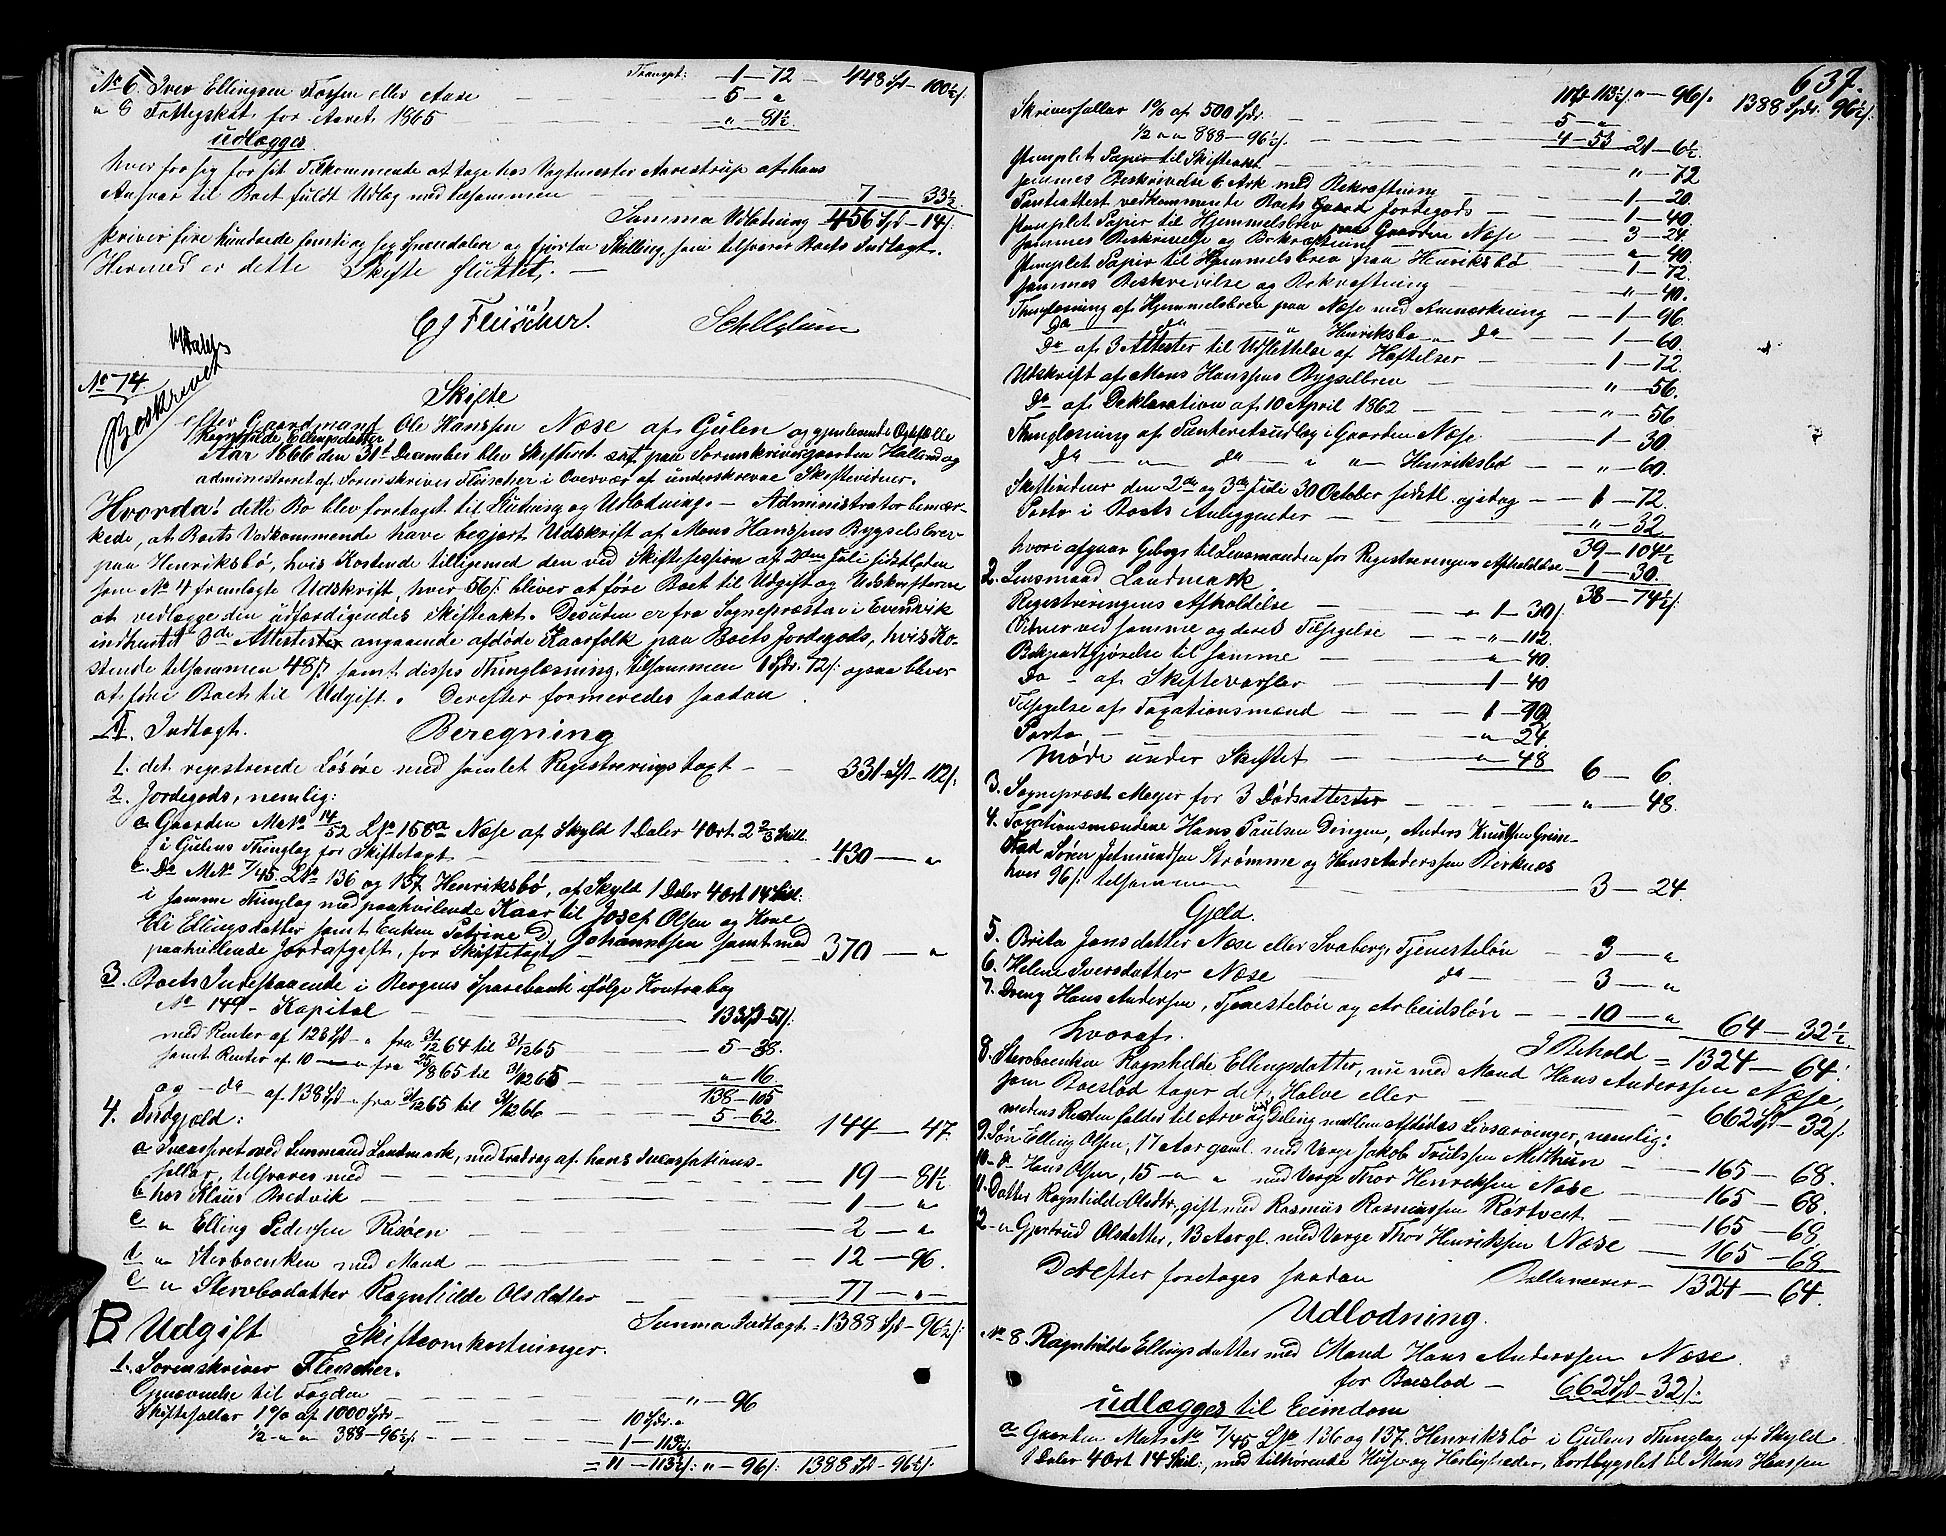 Transpt: 1 — 72 — 448 Spd — 100½ /:
No 6. Iver Ellingsen Fossen eller Aase — 5 — "
" 8 Fattigskat for Aaret 1865 — " — 81½
udlægges
hver for sig for sit Tilkommende at tage hos Vagtmester Aarestrup af hans
Ansvar til Boet fuldt Udlæg med tilsammen — 7 — 33½
Summa Udlodning 456 Spd — 14 /:
skriver fire hundrede femti og sex Speciedaler og fjorten Skilling, som tilsvarer Boets Indtægt.
Hermed er dette Skifte sluttet. —
CJ Fleischer.
No 74.
Beskrevet
Skifte
efter Gaardmand Ole Hanssen Næse af Gulen og gjenlevende Ægtefælle
Ragnhilde Ellingsdatter
Aar 1866 den 31te December blev Skifteret sat paa Sorenskrivergaarden Halland og
administreret af Sorenskriver Fleischer i Overvær af underskrevne Skiftevidner.
Hvorda! dette Bo blev foretaget til Slutning og Udlodning. — Administrator bemær-
kede, at Boets Vedkommende have begjært Udskrift af Mons Hanssens Bygselbrev
paa Henriksbø, hvis Kostende tilligemed den ved Skiftesession af 2den Juli sidstleden
som No 4 fremlagte Udskrift, hver 56 /: bliver at føre Boet til Udgift og Udskrifterne
at vedlægge den udfærdigendes Skifteakt. Desuden er fra Sognepræsten i Evendvik
indhentet 3de Attester angaaende afdøde Kaarfolk paa Boets Jordegods, hvis Ko-
stende tilsammen 48 /: samt disses Thinglæsning, tilsammen 1 Spdr. 72 /: ogsaa bliver
at føre Boet til Udgift. Derefter formeredes saadan
Beregning
A. Indtægt.
1. det registrerede Løsøre med samlet Registreringstaxt — 331 Spd — 112 /:
2. Jordegods, nemlig:
a Gaarden MNo 14/52 LNo 158a Næse af Skyld 1 Daler 4 Ort 2⅔ Skill.
i Gulens Thinglag for Skiftetaxt — 430 — "
Do MNo 7/45. LNo 136 og 137 Henriksbø, af Skyld 1 Daler 4 Ort 14 Skil:
i samme Thinglag med paahvilende Kaar til Josef Olsen og Kone
Eli Ellingsdatter samt Enken Petrine D. Johannessen samt med
paahvilende Jordafgift, for Skiftetaxt — 370 — "
3. Boets Indestaaende i Bergens Sparebank ifølge Kontrabog
No 149 — Kapital — 133 Spd — 51 /:
med Renter af 128 Spd — " fra 31/12 64 til 31/12 65 — 5 — 38.
samt Renter af 10 — " fra 25/8 65 til 31/12 65 — " — 16
138 — 105
og — do af 138 Spd — fra 31/12 65 til 31/12 66 — 5 — 62.
144 — 47.
4. Indgjæld:
a Incasseret ved Lensmand Landmark, med Fradrag af hans Incassations-
sallær, tilsvares med — 19 — 81½
b hos Klaus Bredvik — 1 — "
c " Elling Pedersen Risøen — 2 — "
d " Sterboenken med Mand — 12 — 96.
e " Sterbodatter Ragnhilde Olsdatter — 77 — "
Summa Indtægt = 1388 Spd — 96½ /:
B. Udgift
Skifteomkostninger.
1. Sorenskriver Fleischer.
Opnævnelse til Fogden — " — 96
Skiftesallær 1% af 1000 Spdr — 10 Spdr. "
½ — " — " 388 — 96½ /: — 1 — 113½
= 11 — 113½ /: " — 96 /: 1388 Spd — 96½ /:
637.
11 — 113½ /: " — 96 /: 1388 Spdr. 96½ /:
Skriversallær 1% af 500 Spdr. — 5 — "
½ " " 888 — 96½ /: — 4 — 53 21 — 6½
stemplet Papir til Skifteakt — " — 72
sammes Beskrivelse 6 Ark med Bekræftning — 1 — 20.
Panteattest vedkommende Boets Jordegods — 1 — 40.
stemplet Papir til Hjemmelsbrev paa Gaarden Næse — 3 — 24.
sammes Beskrivelse og Bekræftning — " — 40.
stemplet Papir til Hjemmelsbrev paa Henriksbø — 1 — 72.
sammes Beskrivelse og Bekræftning — " — 40.
Thinglæsning af Hjemmelsbrev paa Næse med Anmærkning — 1 — 96
Do — do — " Henriksbø " Do — 1 — 60.
Do af 3 Attester til Udslettelse af Hæftelser — 1 — 72.
Udskrift af Mons Hanssens Bygselbrev — " — 56.
Do af Deklaration af 10 April 1862 — " — 56.
Thinglæsning af Panteretsudlæg i Gaarden Næse — 1 — 30.
Do — " — do — " " — Henriksbø — " — 60.
Skiftevidner den 2den og 3die Juli 30 October sidstl. og idag — 1 — 72.
Porto i Boets Anliggender — " — 32
39 — 104½
hvori afgaar Gebyr til Lensmanden for Registreringens Afholdelse — 1 — 30.
38 — 74½ /:
2. Lensmand Landmark
Registreringens Afholdelse — 1 — 30 /:
Vidner ved samme og deres Tilsigelse — " — 112.
Bekjendtgjørelse til samme — " — 40.
Do — af Skiftevarsler — 1 — 40
Tilsigelse af Taxationsmænd — 1 — 90
Porto — " — 24.
Møde under Skiftet — " — 48 6 — 6.
3. Sognepræst Meyer for 3 Dødsattester — " — 48.
4. Taxationsmændene Hans Paulsen Dingen, Anders Knutsen Grin-
stad Søren Jetmundsen Strømme og Hans Anderssen Birknes
hver 96 /: tilsammen — 3 — 24.
Gjeld.
5. Brita Jonsdatter Næse eller Svaberg, Tjenesteløn — 3 — "
6. Helene Iversdatter Næse — do — 3 — "
7. Dreng Hans Andersen, Tjenesteløn og Arbeidsløn — 10 — " 64 — 32½
hvoraf. I Behold = 1324 — 64.
8. Sterboenken Ragnhilde Ellingsdatter, nu med Mand Hans Anderssen Næse,
som Boeslod tager det Halve eller — 662 Spd — 32 /:
medens Resten falder til Arv og Deling mellem Afdødes Livsarvinger, nemlig:
9. Søn Elling Olsen, 17 Aar gaml. med Verge Jakob Trulssen Midthun — 165 — 68.
10. — do Hans Olsen, 15 — " " med Verge Thor Henriksen Næse — 165 — 68.
11. Datter Ragnhilde Olsdtr. gift med Rasmus Rasmussen Rørtvedt — 165 — 68.
12 — " Gjertrud Olsdatter, 13 Aar gl. med Verge Thor Henriksen Næse — 165 — 68
Derefter foretages saadan Ballancerer — 1324 — 64.
Udlodning.
No 8. Ragnhilde Ellingsdatter med Mand Hans Anderssen Næse.
for Boeslod — 662 Spd — 32 /:
udlægges til Eiendom
a Gaarden Mat. No 7/45 LNo 136 og 137. Henriksbø i Gulens Thinglag af Skyld
1 Daler 4 Ort 14 Skil:, med tilhørende Huse og Herligheder, bortbygslet til Mons Hanssen